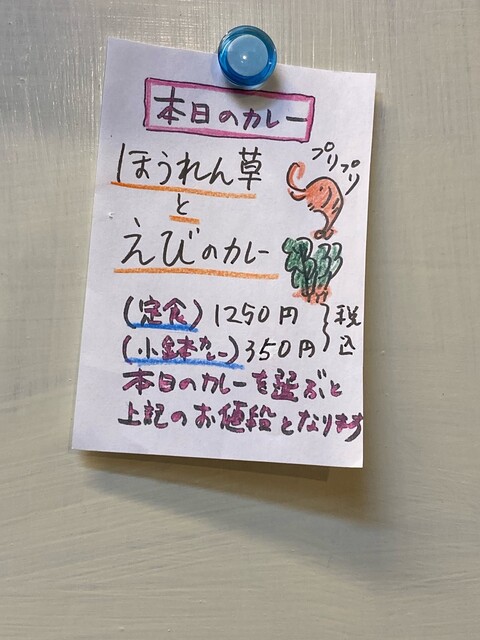 本日のカレー
ほうれん草
と
えびのカレー
プリプリ
(定食) 1250円
(小鉢カレー) 350円
税込
本日のカレーを選ぶと
上記のお値段となります